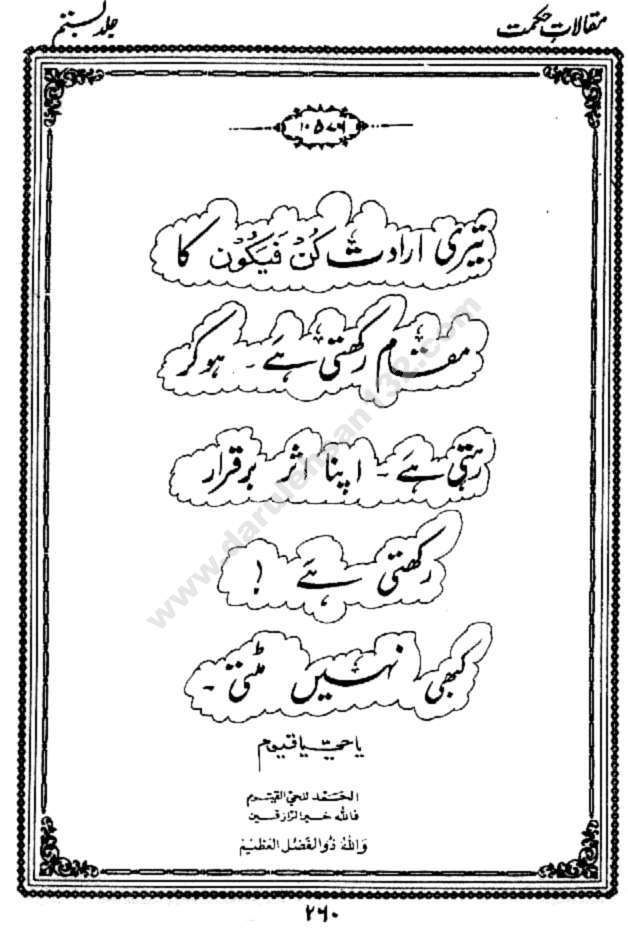 مقالاتِ حکمت
جلد بستم
۱۰۵۷۶
تیری ارادت کُنْ فَیَکُوْن کا
مقام رکھتی ہے ۔ ہوکر
رہتی ہے ۔ اپنا اثر برقرار
رکھتی ہے !
کبھی نہیں مٹتی ۔
یاحیّ یاقیوم
الحَمد للحیّ القیّوم
فاللہ خیرالرّازقین
وَاللّٰہُ ذُوالفَضْلِ العَظِیْم
۲۶۰
www.darulehsan132.com